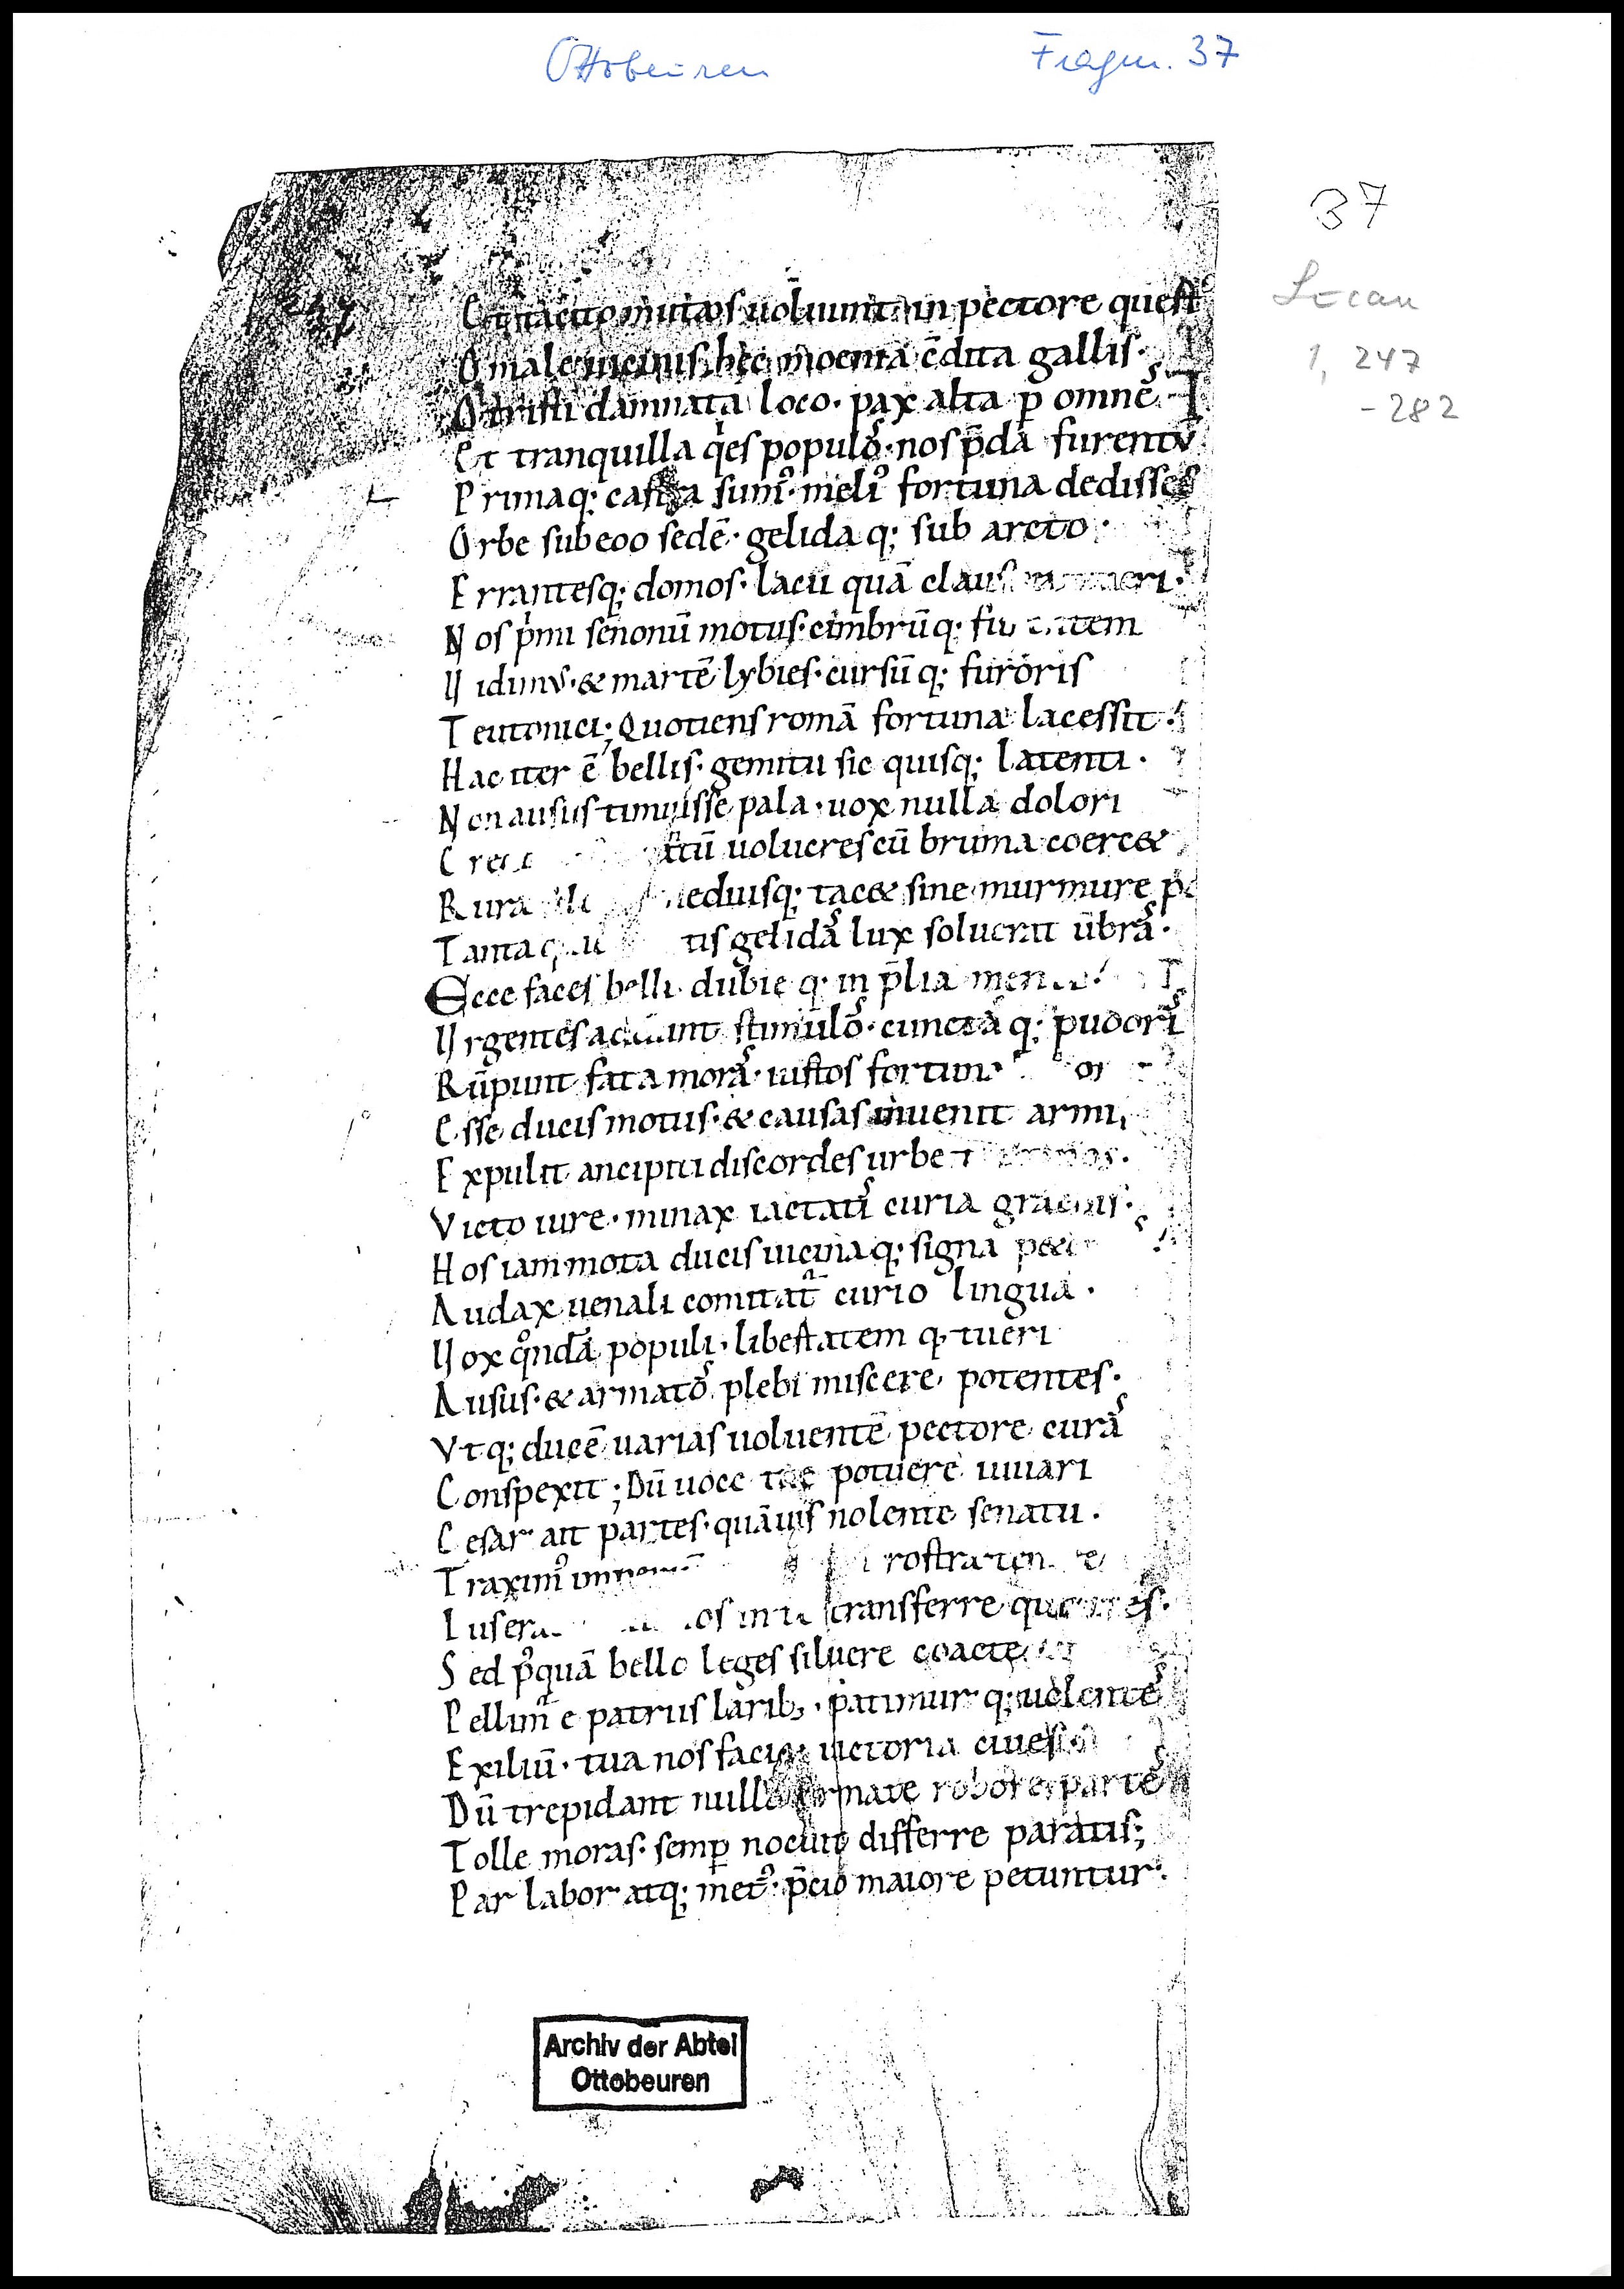 Ottobeuren Fragm. 37
37
Lucan
1, 247
-282
Et tacito mutos uoluunt in pectore quest᷒
O male uicinis hęc moenia c̄dita gallis·
O tristi damnata loco· pax alta p̄ omnē᷒
Et tranquilla q̇es populo᷒· nos p̄dā furentv̄
Primaq; castra sum᷒· meli᷒ fortuna dedisses
Orbe sub eoo sedē· gelidaq; sub arcto·
Errantesq; domos· lacii quā claus
Nos p̍mi senonū motus· cimbrūq;
Uidimv᷒· & martē lybies· cursūq; furoris
Teutonici; Quotiens romā fortuna lacessit·
Hac iter ē bellis· gemitu sic quisq; latenti·
Non ausus timuisse palā· uox nulla dolori
uolucres cū bruma coercet
Rura tac& sine murmure
Tanta gelidā᷒ lux soluerat ūbrā᷒·
Ecce faces belli· dubięq; in p̄lia
Urgentes stimulo᷒· cunctāq; pudori᷒
Rūpunt fata morā᷒· iustos
Esse ducis motus· & causas inuenit
Expulit ancipiti discordes urbe
Victo iure· minax iactati᷒ curia gracchis·
Hos iam mota ducis uicinaq; signa
Audax uenali comitat᷒ curio lingua·
Uox q̊ndā populi· libertatemq; tueri
Ausus· & armato᷒ plebi miscere potentes·
Vtq; ducē uarias uoluentē pectore curā᷒
Conspexit; Dū uoce potuere iuuari
Cesar ait partes· quāuis nolente senatu·
Traxim᷒ rostra
transferre
Sed p᷒quā bello leges siluere coacte
Pellim᷒ e patriis larib;· patimurq; uolente᷒
Exiliū· tua nos uictoria ciues·
Dū trepidant robore parte᷒
Tolle moras· semp̄ nocuit differre paratis;
Par labor atq; met᷒· p̄cio maiore petuntur·
Archiv der Abtei
Ottobeuren